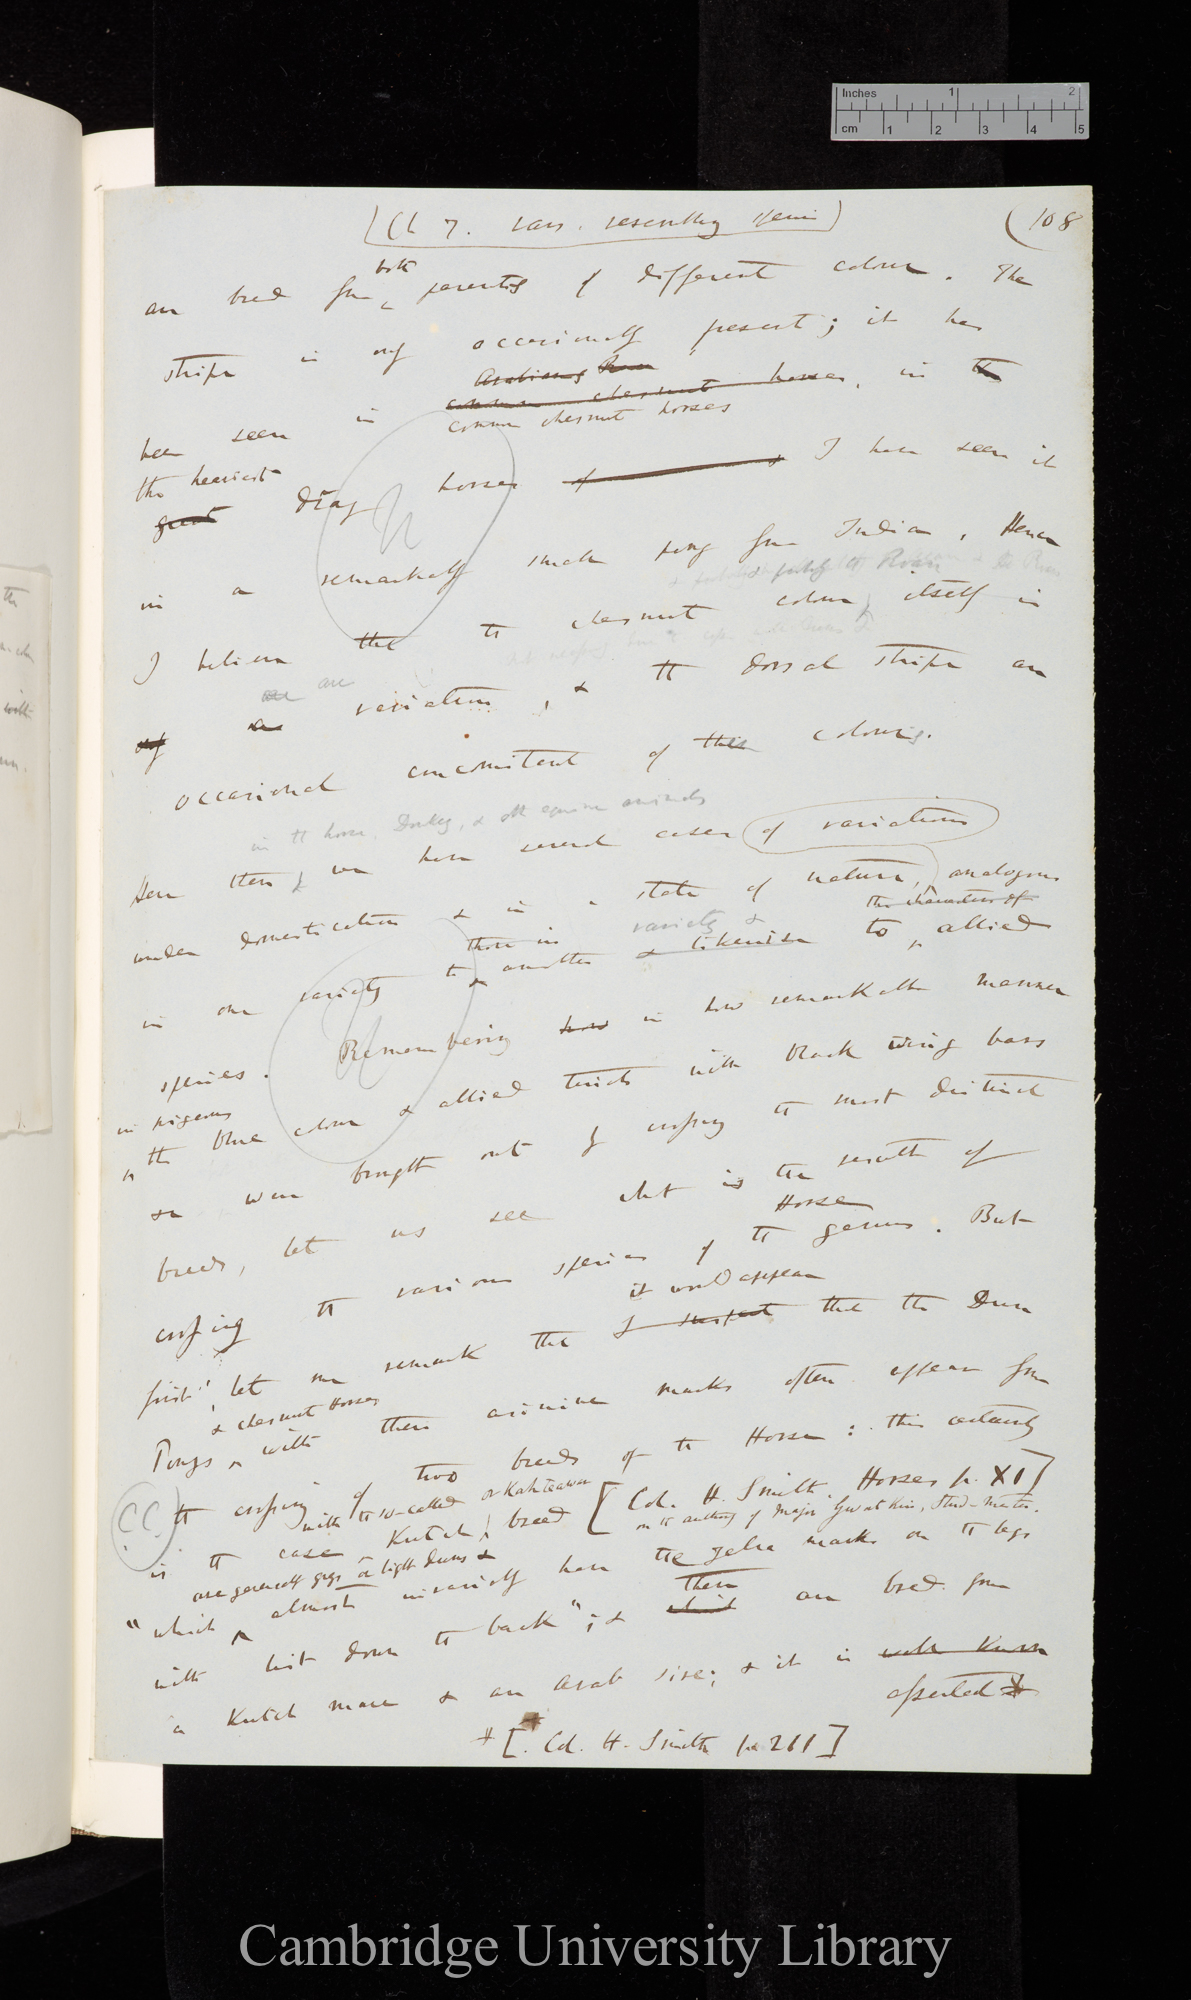 Inches 1 2
cm 1 2 3 4 5
(Ch 7. vars. resembling
(108
both
are bred from parents of different colour. The
stripe is only occasionally present; it has
Arabians Roan
common chesnut horses, in the
been seen in common chesnut horses
the heaviest
great dray horses & I have seen it
in a remarkably small pony from India. Hence
& partly the Roan
I believe that the chesnut colour itself is
are
only a variation, & the dorsal stripe an
occasional concomitant of this colouring.
in the horse, Donkey, & oth equine animals
Here then we have several cases of variations
under domestication & in a state of nature, analogous
those in variety & the characters of
in one variety to another & likewise to allied
species. Remembering how in how remarkable manner
in pigeons
the blue colour & allied tints with black wing bars
&c were brought out by crossing the most distinct
breeds, let us see what is the result of
Horse
crossing the various species of the genus. But
it would appear
first let me remark that I suspect that the Dun
& chesnut Horses
Ponys with their asinine marks often appear from
the crossing of two breeds of the Horse: this certainly
with the so-called or Kahteawar
is the case Kutch breed [Col. H. Smith. Horses p. XI]
on the authority of Major Gwatkin, Stud-master.
are generally greys or light duns &
"which almost invariably have the zebra marks on the legs
with list down the back"; & which these are bred from
a Kutch mare & an Arab sire; & it is well known
asserted
+ [. Col. H. Smith p. 211]
CC
Cambridge University Library